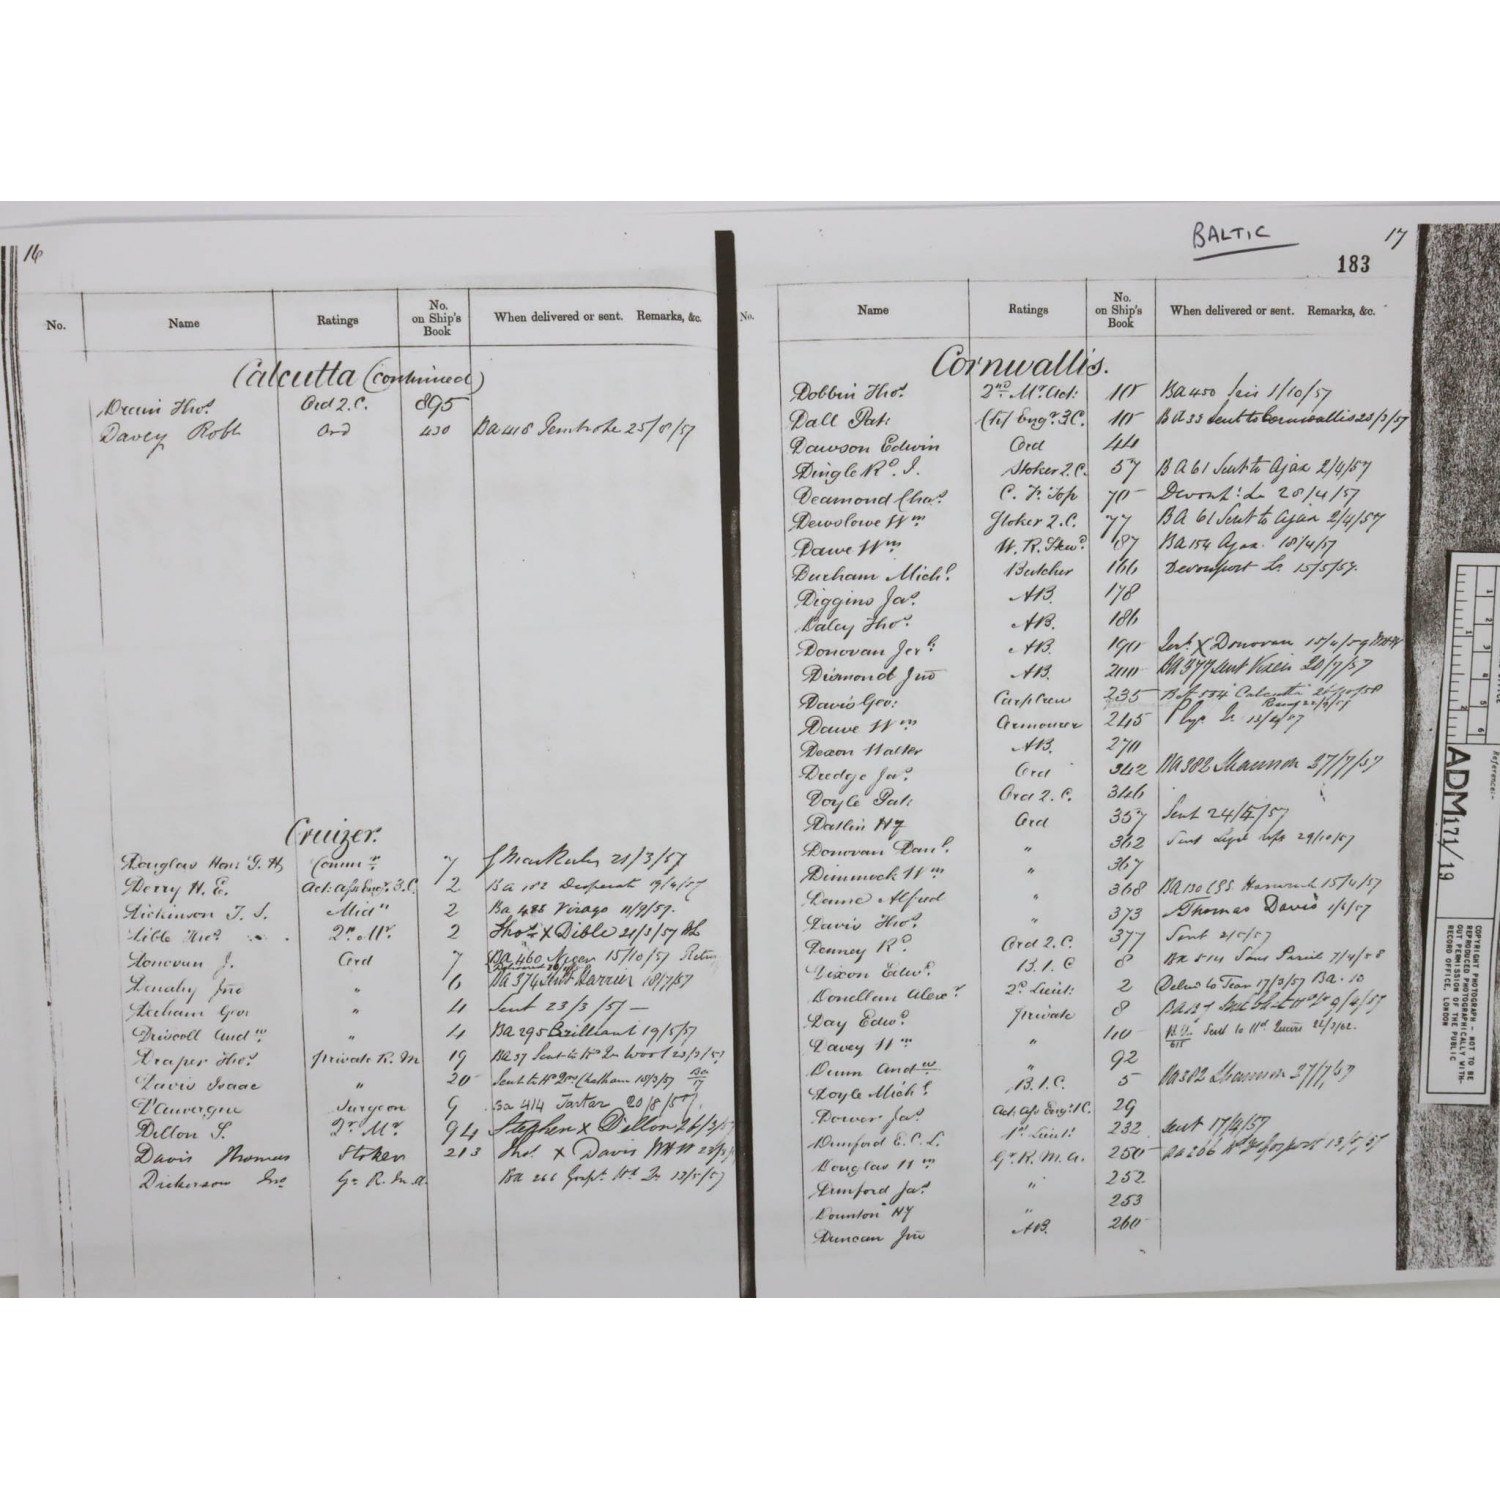 16
No. Name Ratings No. on Ship's Book When delivered or sent. Remarks, &c.
Calcutta (continued)
Thos. Ord 2.C. 895
Davey Robt Ord 430 Ba 418 Pembroke 25/8/57
Cruizer.
Douglas Honl G. H. Commr 7 21/3/57
Derry H. E. Act. Asst Engr. 3.C. 2 Ba 182 Desperate 9/4/57
Dickinson T. S. Midn 2 Ba 485 Virago 11/9/57.
Dible Thos 2nd Mr. 2 Thos X Dible 21/3/57
Donovan J. Ord 7 Ba 460 Niger 15/10/57
Denahy Jno " 6 Ba 374 Sent Harrier 18/7/57
Derham Geo " 4 Sent 23/3/57 —
Driscoll Andw " 4 Ba 295 Brilliant 19/5/57
Draper Thos. Private R.M 19 Ba 37 Sent to Hd Qrs Wool 23/3/57
Davis Isaac " 20 Sent to Hd Qrs Chatham 18/3/57 Ba 17
D'Auvergne Surgeon 9 Ba 414 Tartar 20/8/57.
Dillon S. 2nd Mr. 94 Stephen X Dillon 26/3/57
Davis Thomas Stoker 213 Thos. X Davis
Dickinson Jno Gr. R.M.A. Ba 266 Gospt. Hd Qrs 13/5/57
BALTIC
17
183
No. Name Ratings No. on Ship's Book When delivered or sent. Remarks, &c.
Cornwallis.
Dobbin Thos. 2nd Mr. Act. 10 Ba 450 Iris 1/10/57
Dall Pat. Engr. 3C. 10 BA 33 sent to Cornwallis 23/3/57
Dawson Edwin Ord 44
Dingle Rd. J. Stoker 2.C. 57 BA 61 Sent to Ajax 2/4/57
Deamond Chas. C. F. Top 70 Devonpt. 28/4/57
Dewslowe Wm Stoker 2.C. 77 BA 61 Sent to Ajax 2/4/57
Dawe Wm W. R. Stewd. 87 Ba 154 Ajax. 18/4/57
Durham Michl. Butcher 166 Devonport 15/5/57.
Diggins Jas. AB. 178
Daley Thos. AB. 186
Donovan Jerh. AB. 190 Jerh X Donovan 15/4/59
Dismond Jno AB. 200 Ba 377 sent Vixen 20/7/57
Davis Geo. Carp Crew 235 Calcutta
Dawe Wm Armourer 245 13/4/57
Dexon Walter AB. 270
Dredge Jas. Ord 342 Ba 382 Shannon 27/7/57
Doyle Pat. Ord 2.C. 346
Datlin Hy Ord 357 Sent 24/4/57
Donovan Danl. " 362 29/10/57
Dimmock Wm 367
Dame Alfred " 368 Ba 130 Harwich 15/4/57
Davis Thos. " 373 Thomas Davis 1/6/57
Denney Rd. Ord 2.C. 377 Sent 2/5/57
Dixon Edwd. B.1.C 8 Ba 514 Sans Pareil 7/4/58
Donellan Alexr. 2nd Lieut. 2 Delivd to Tean 17/3/57 Ba. 10
Day Edwd. Private 8
Davey Wm " 40 Sent to Hd. Quars 22/3/62.
Dunn Andw " 92
Doyle Michl. B.1.C. 5 Ba 382 Shannon 27/7/57
Dower Jas. Act. Asst Engr. 1C. 29
Dunford E.C.L. 1st Lieut. 232 Sent 17/4/57
Douglas Wm Gr. R.M.A. 250 Ba 266 Hd Qrs Gosport 13/5/57
Dunford Jas. " 252
Dounton Hy " 253
Duncan Jno AB. 260
Reference:-
ADM 171/19
COPYRIGHT PHOTOGRAPH - NOT TO BE REPRODUCED PHOTOGRAPHICALLY WITHOUT PERMISSION OF THE PUBLIC RECORD OFFICE, LONDON